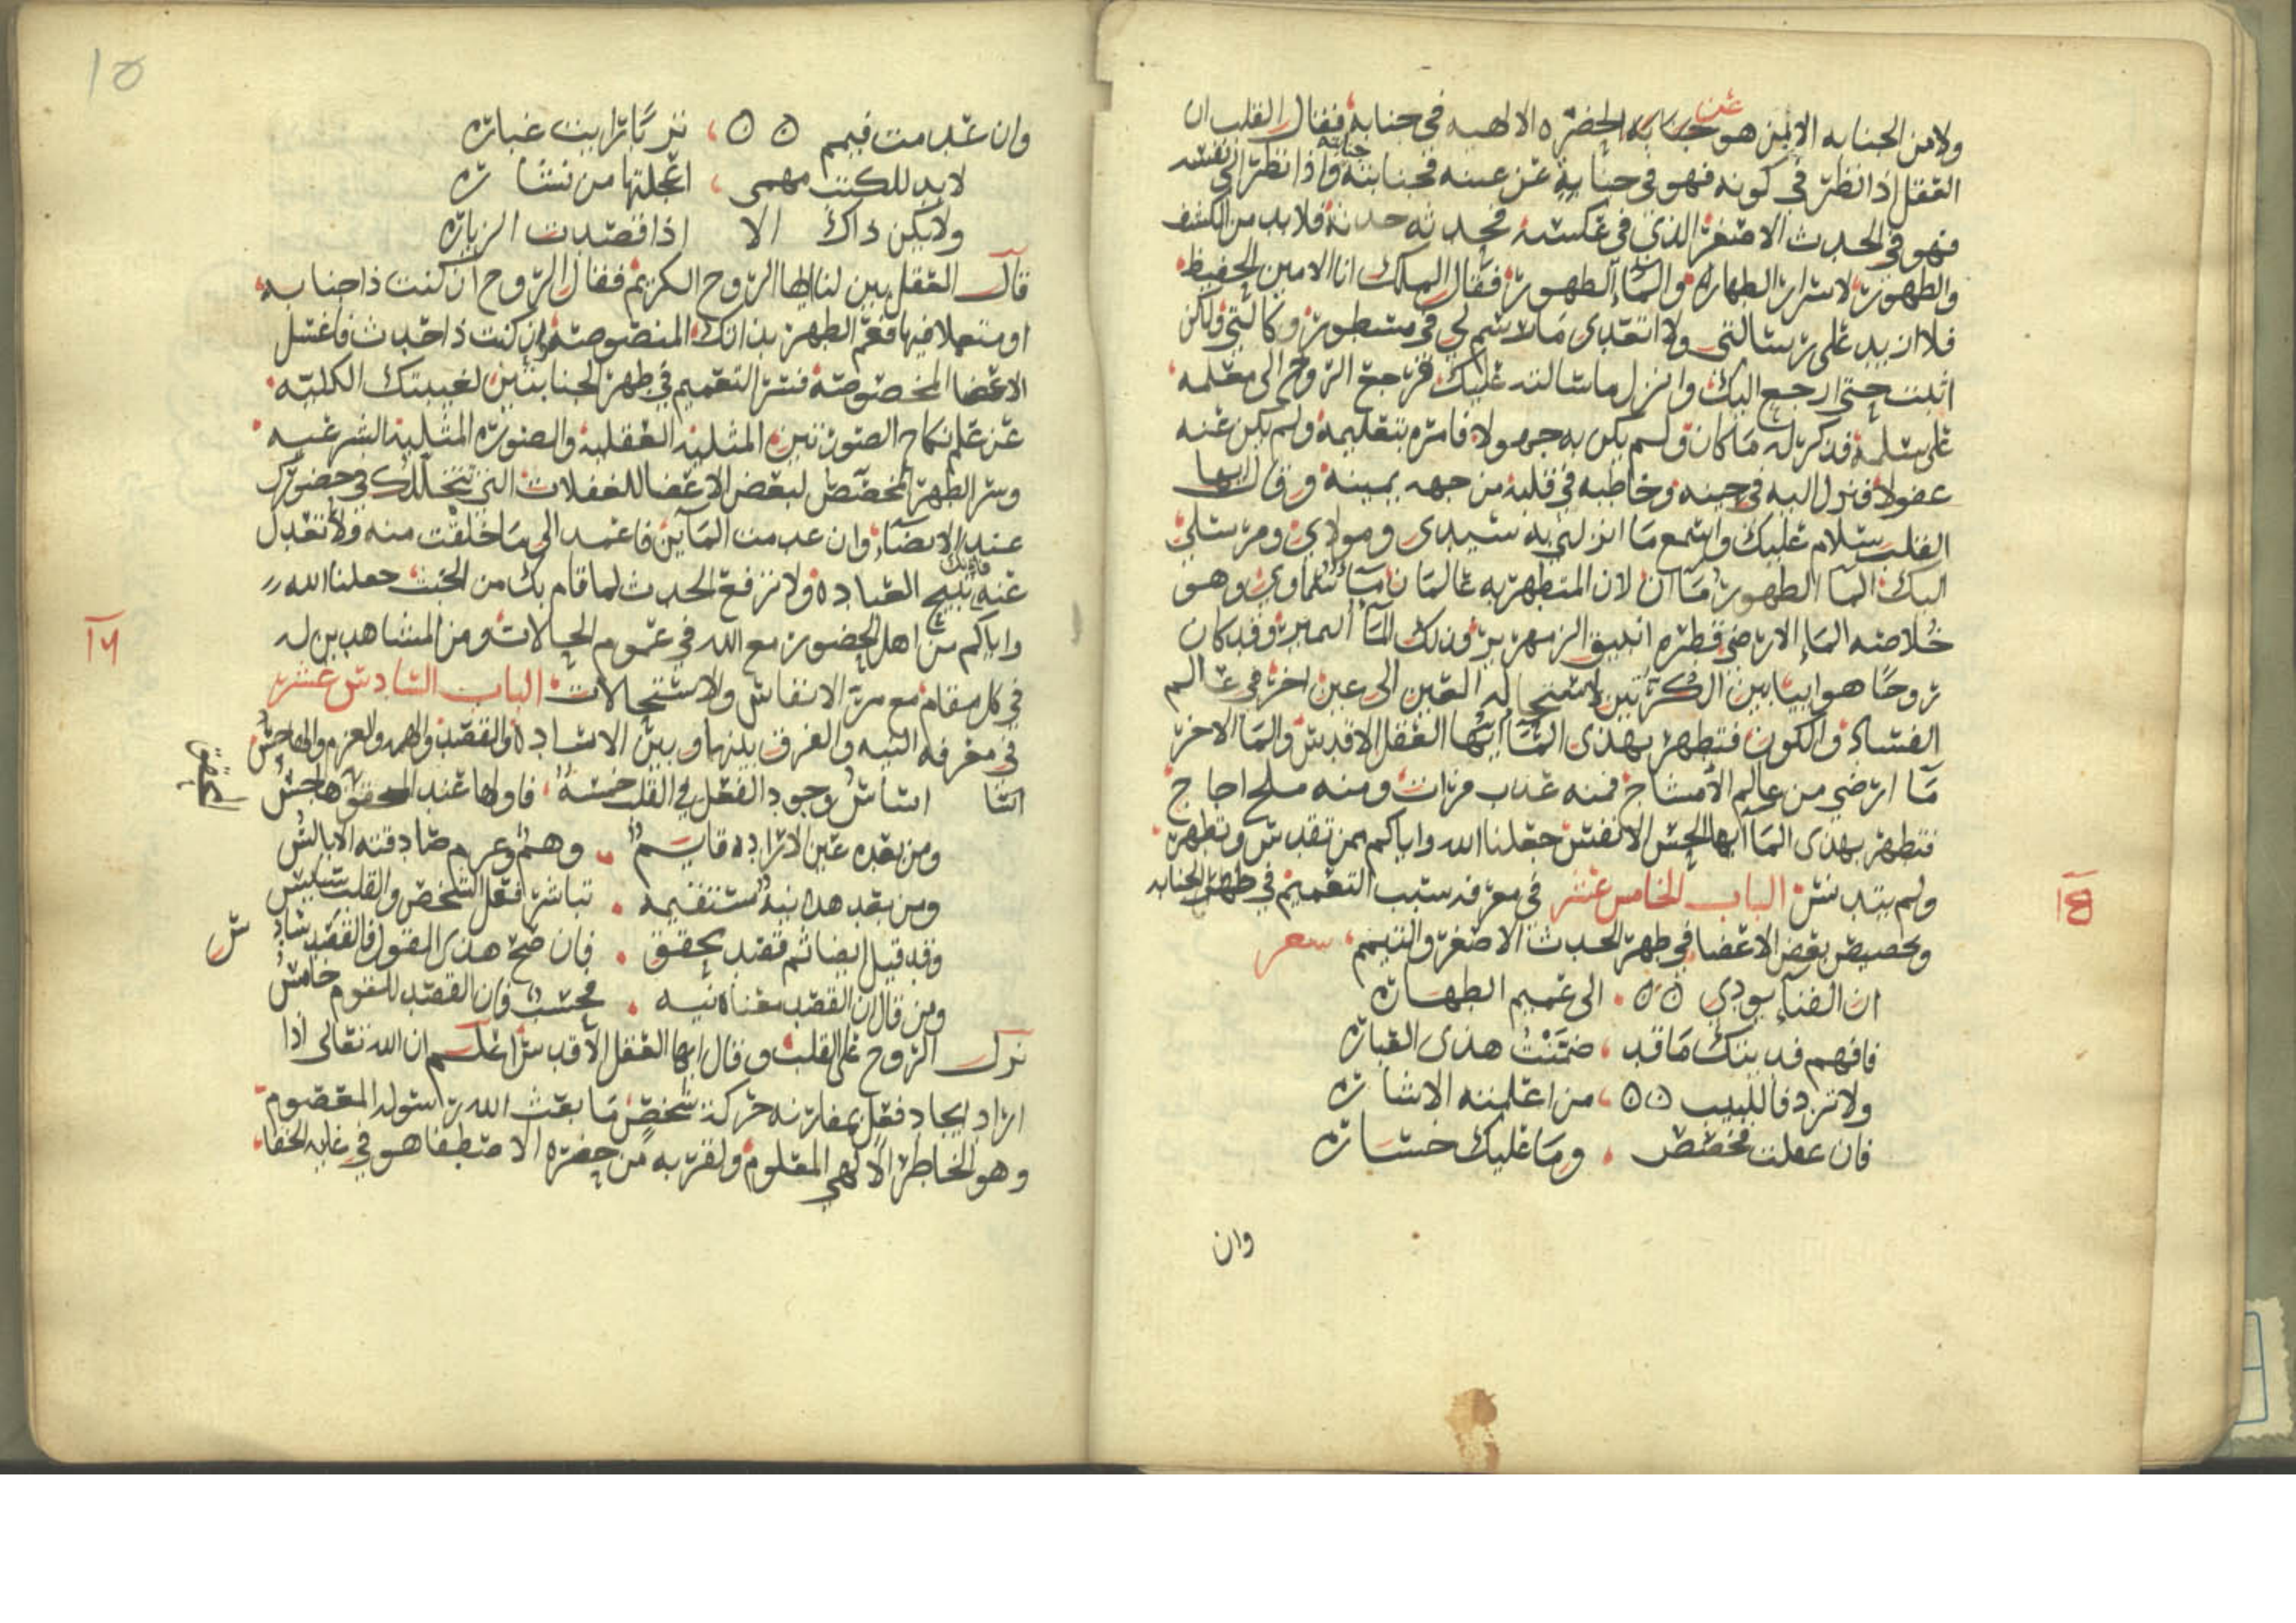 عن
ولا من الجنابه الا من هو جنابه الحضره الالهيه في جنابه فقال القلب ان
العقل اذا نظر في كونه فهو في جنابة عن عينه فجنابته جنابته واذا نظر الى نفسه
فهو في الحدث الاصغر الذي في عكسه فحدثه حدثه فلا بد من الكشف
والطهور لاسرار الطهاره والماء الطهور فقال الملك انا الامين الحفيظ
فلا ازيد على رسالتي ولا اتعدى ما رسم لي في مسطور وكالتي ولكن
اثبت حتى ارجع اليك وانزل ما سالت عليك فرجع الروح الى معلمه
على سلمه فذكر له ما كان ولم يكن به جهولا فامره بتعليمه ولم يكن عنه
غفولا فنزل اليه في حينه وخاطبه في قلبه من جهه يمينه وقال ايها
القلب سلام عليك واسمع ما انزلني به سيدي ومولاي ومرسلي
اليك الما الطهور ماان لان المتطهر به عالمان ماء سماوي وهو
خلاصه الماء الارضي قطره انبيق الزمهرير فذلك الما النمير وقد كان
روحا هوائيا بين الكرتين لاستحاله العين الى عين اخر في عالم
الفساد والكون فتطهر بهذى الما ايها العقل الاقدس والما الاخر
ما ارضي من عالم الامشاج فمنه عذب فرات ومنه ملح اجاج
فتطهر بهذى الما ايها الحس الانفس جعلنا الله واياكم ممن تقدس وتطهر
ولم يتدنس الباب الخامس عشر في معرفه سبب التعميم في طهر الجنابه
١٥
وتخصيص بعض الاعضا في طهر الحدث الاصغر والتيمم شعر
ان الفناء يودي الى عميم الطهاره
فافهم فديتك ما قد ضمنت هذى العباره
ولا تزد فاللبيب من اعلمته الاشاره
فان عقلت فخصص وما عليك خساره
وان
١٥
وان عدمت فيمم تربا ترابت غباره
لا بد للكشف مهمى اعجلتها من نشاره
ولا يكن ذاك الا اذا قصدت الزياره
قال العقل بين لنا ايها الروح الكريم فقال الروح ان كنت ذا جنابه
او متعملا فيها فعم الطهر بذاتك المنصوصه وان كنت ذا حدث فاغسل
الاعضا المخصوصه فسر التعميم في طهر الجنابتين لغيبتك الكليه
عن علم نكاح الصورتين المثليه العقليه والصوره المثليه الشرعيه
وسر الطهر المخصص لبعض الاعضا للغفلات التي تتخللك في حضورك
عند الايضاء وان عدمت الماين فاعمد الى ما خلقت منه ولا تعدل
عنه فانك تبيح العباده ولا ترفع الحدث لما قام بك من الخبث جعلنا الله
واياكم من اهل الحضور مع الله في عموم الحالات ومن المشاهدين له
١٦
في كل مقام مع مر الانفاس والاستحالات الباب السادس عشر
في معرفه النيه والفرق بينها وبين الاراده والقصد والهم والعزم والهاجس
انشا اساس وجود الفعل في القلب خمسة فاولها عند المحقق هاجس
ومن بعده عين الاراده قايم وهم وعزم صادقته الابالس
ومن بعد هذا نيه مستقيمه تباشر فعل الشخص والقلب سايس
وقد قيل ايضا ثم قصد محقق فان صح هذى القول فالقصد سادس
ومن قال ان القصد معناه نيه فحسب فان القصد للقوم خامس
نزل الروح على القلب وقال ايها العقل الاقدس اعلم ان الله تعالى اذا
اراد ايجاد فعل بمقارنه حركة شخص ما بعث الله رسوله المعصوم
وهو الخاطر الالهي المعلوم ولقربه من حضره الاصطفا هو في غايه الخفا